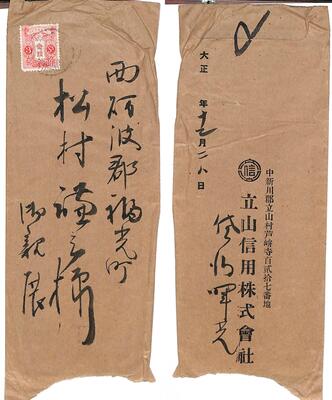 西砺波郡福光町
松村謙三様
御親展
大正 年十二月二八日
中新川郡立山村芦峅寺百貳拾七番地
信
立山信用株式會社